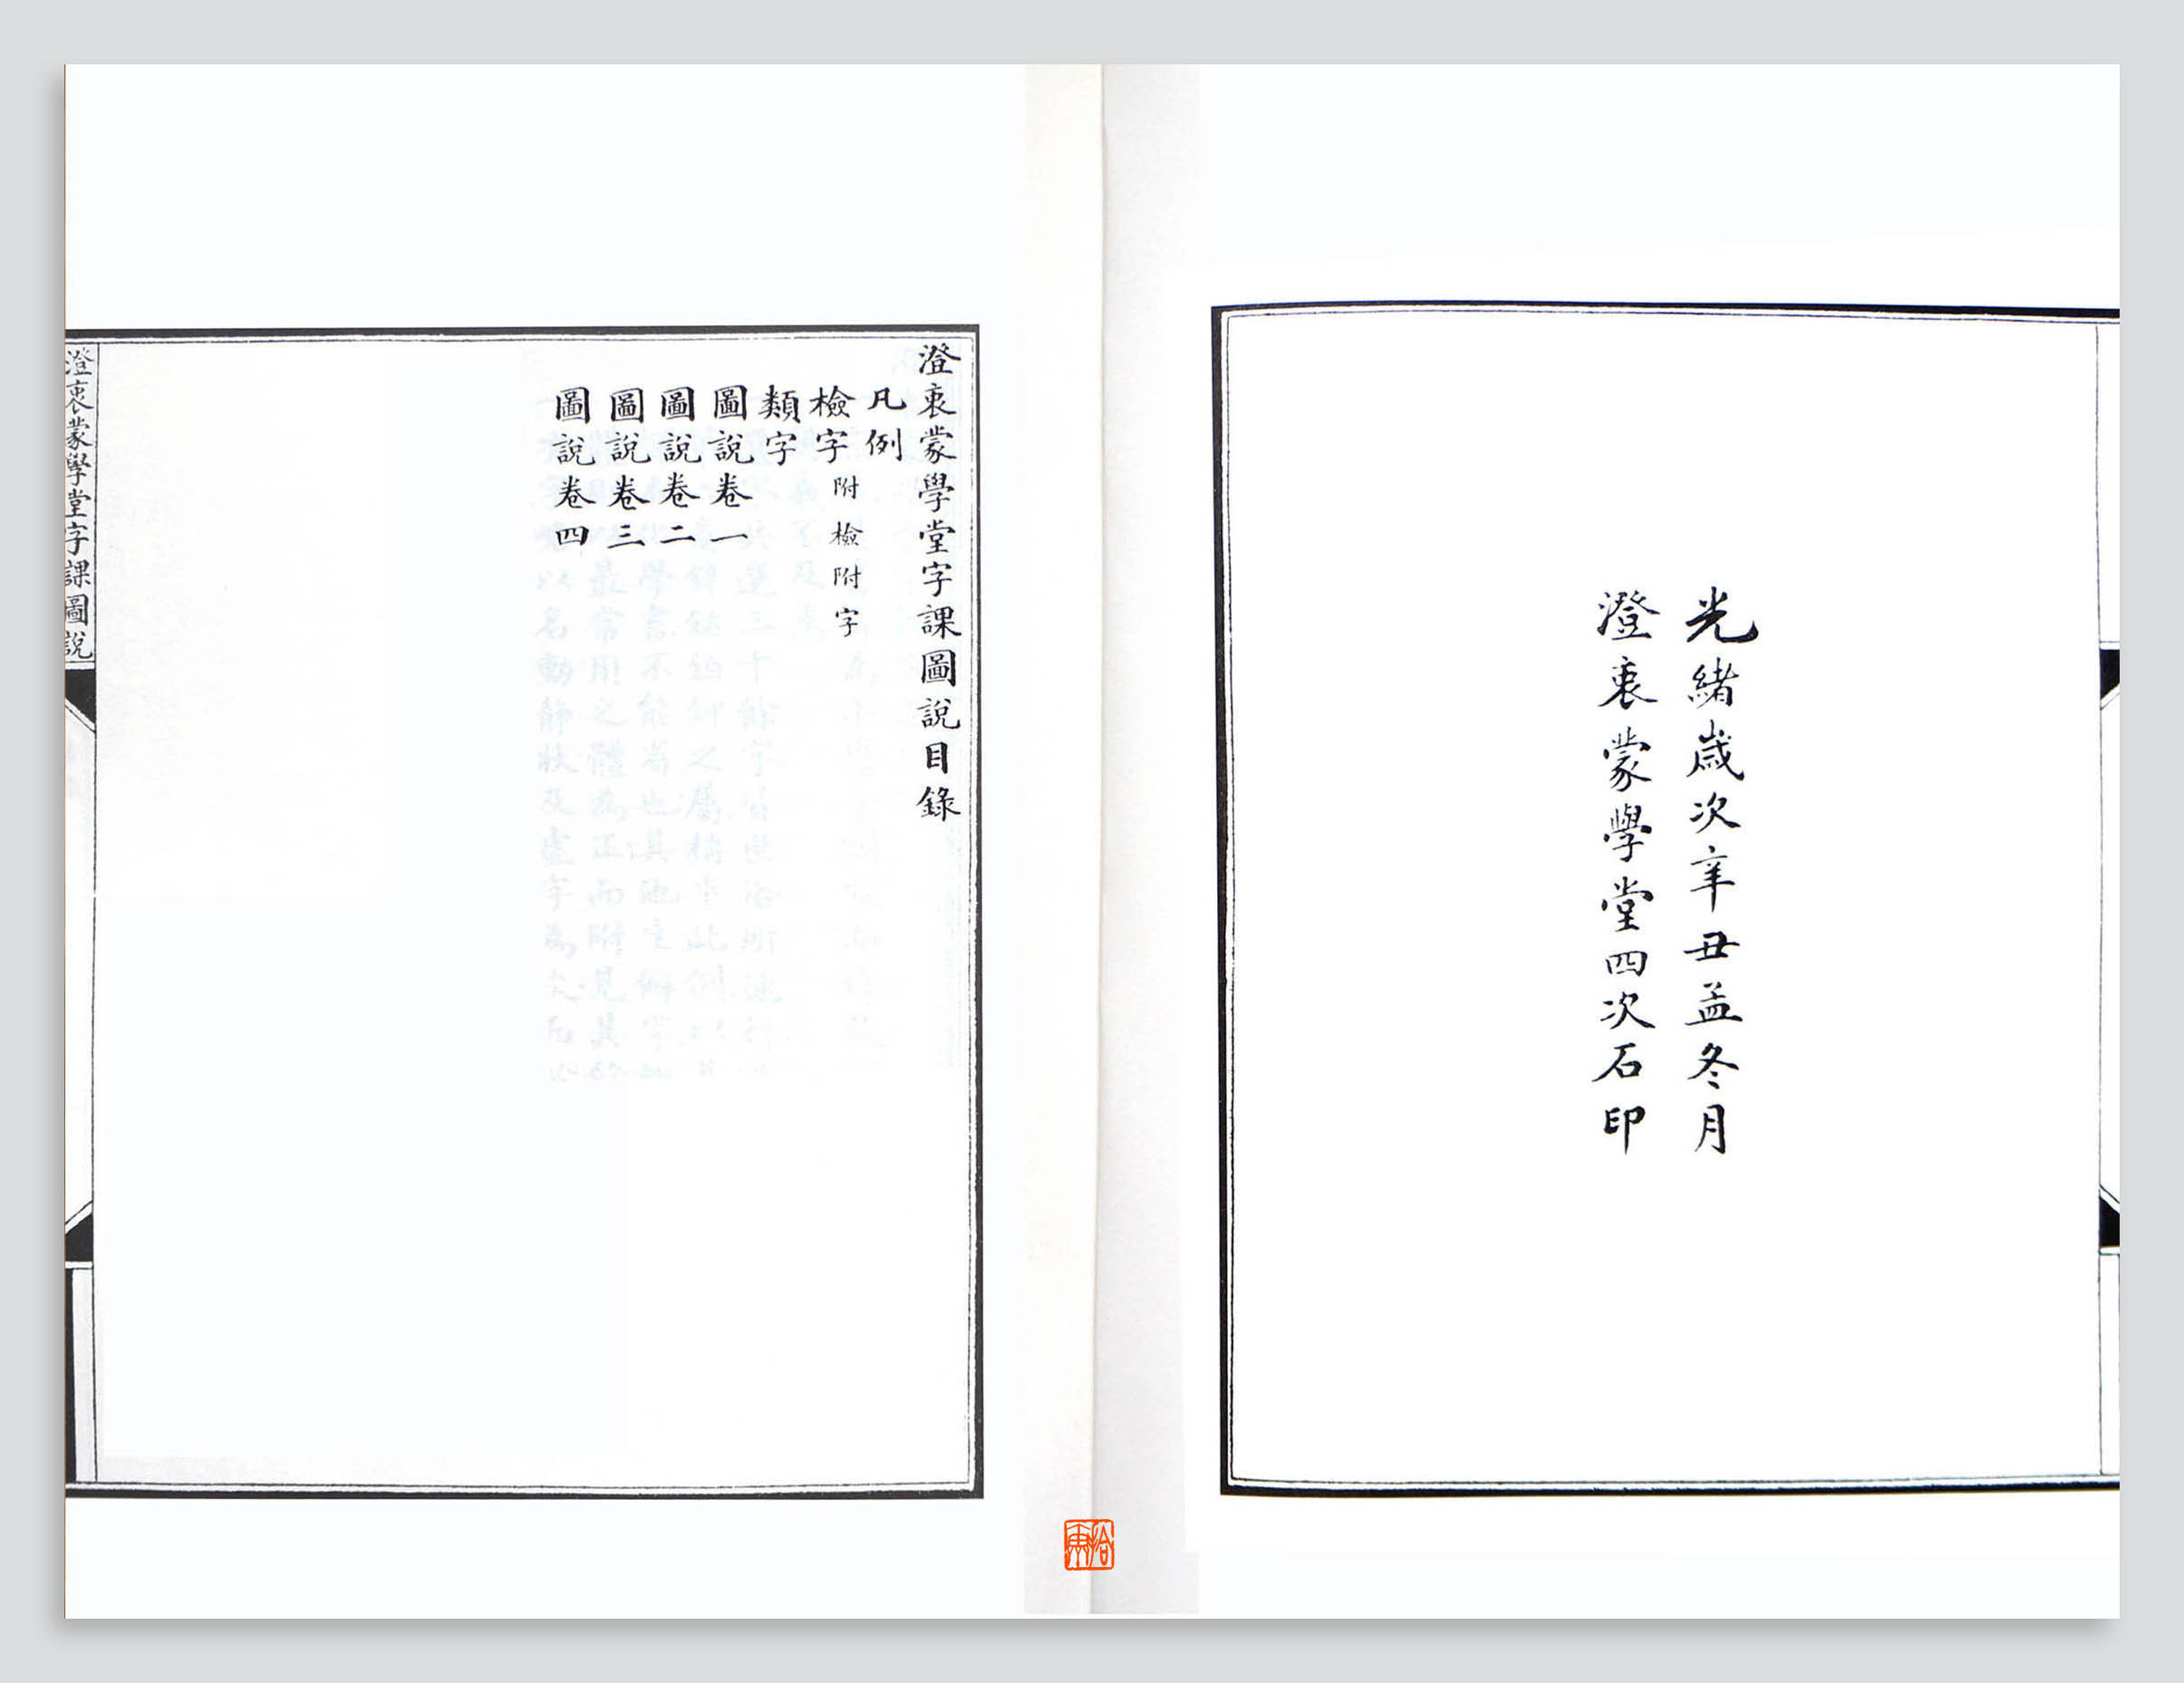 光緒歲次辛丑孟冬月
澄衷蒙學堂四次石印
澄衷蒙學堂字課圖說目錄
凡例
檢字 附檢附字
類字
圖說卷一
圖說卷二
圖說卷三
圖說卷四
澄衷蒙學堂字課圖說